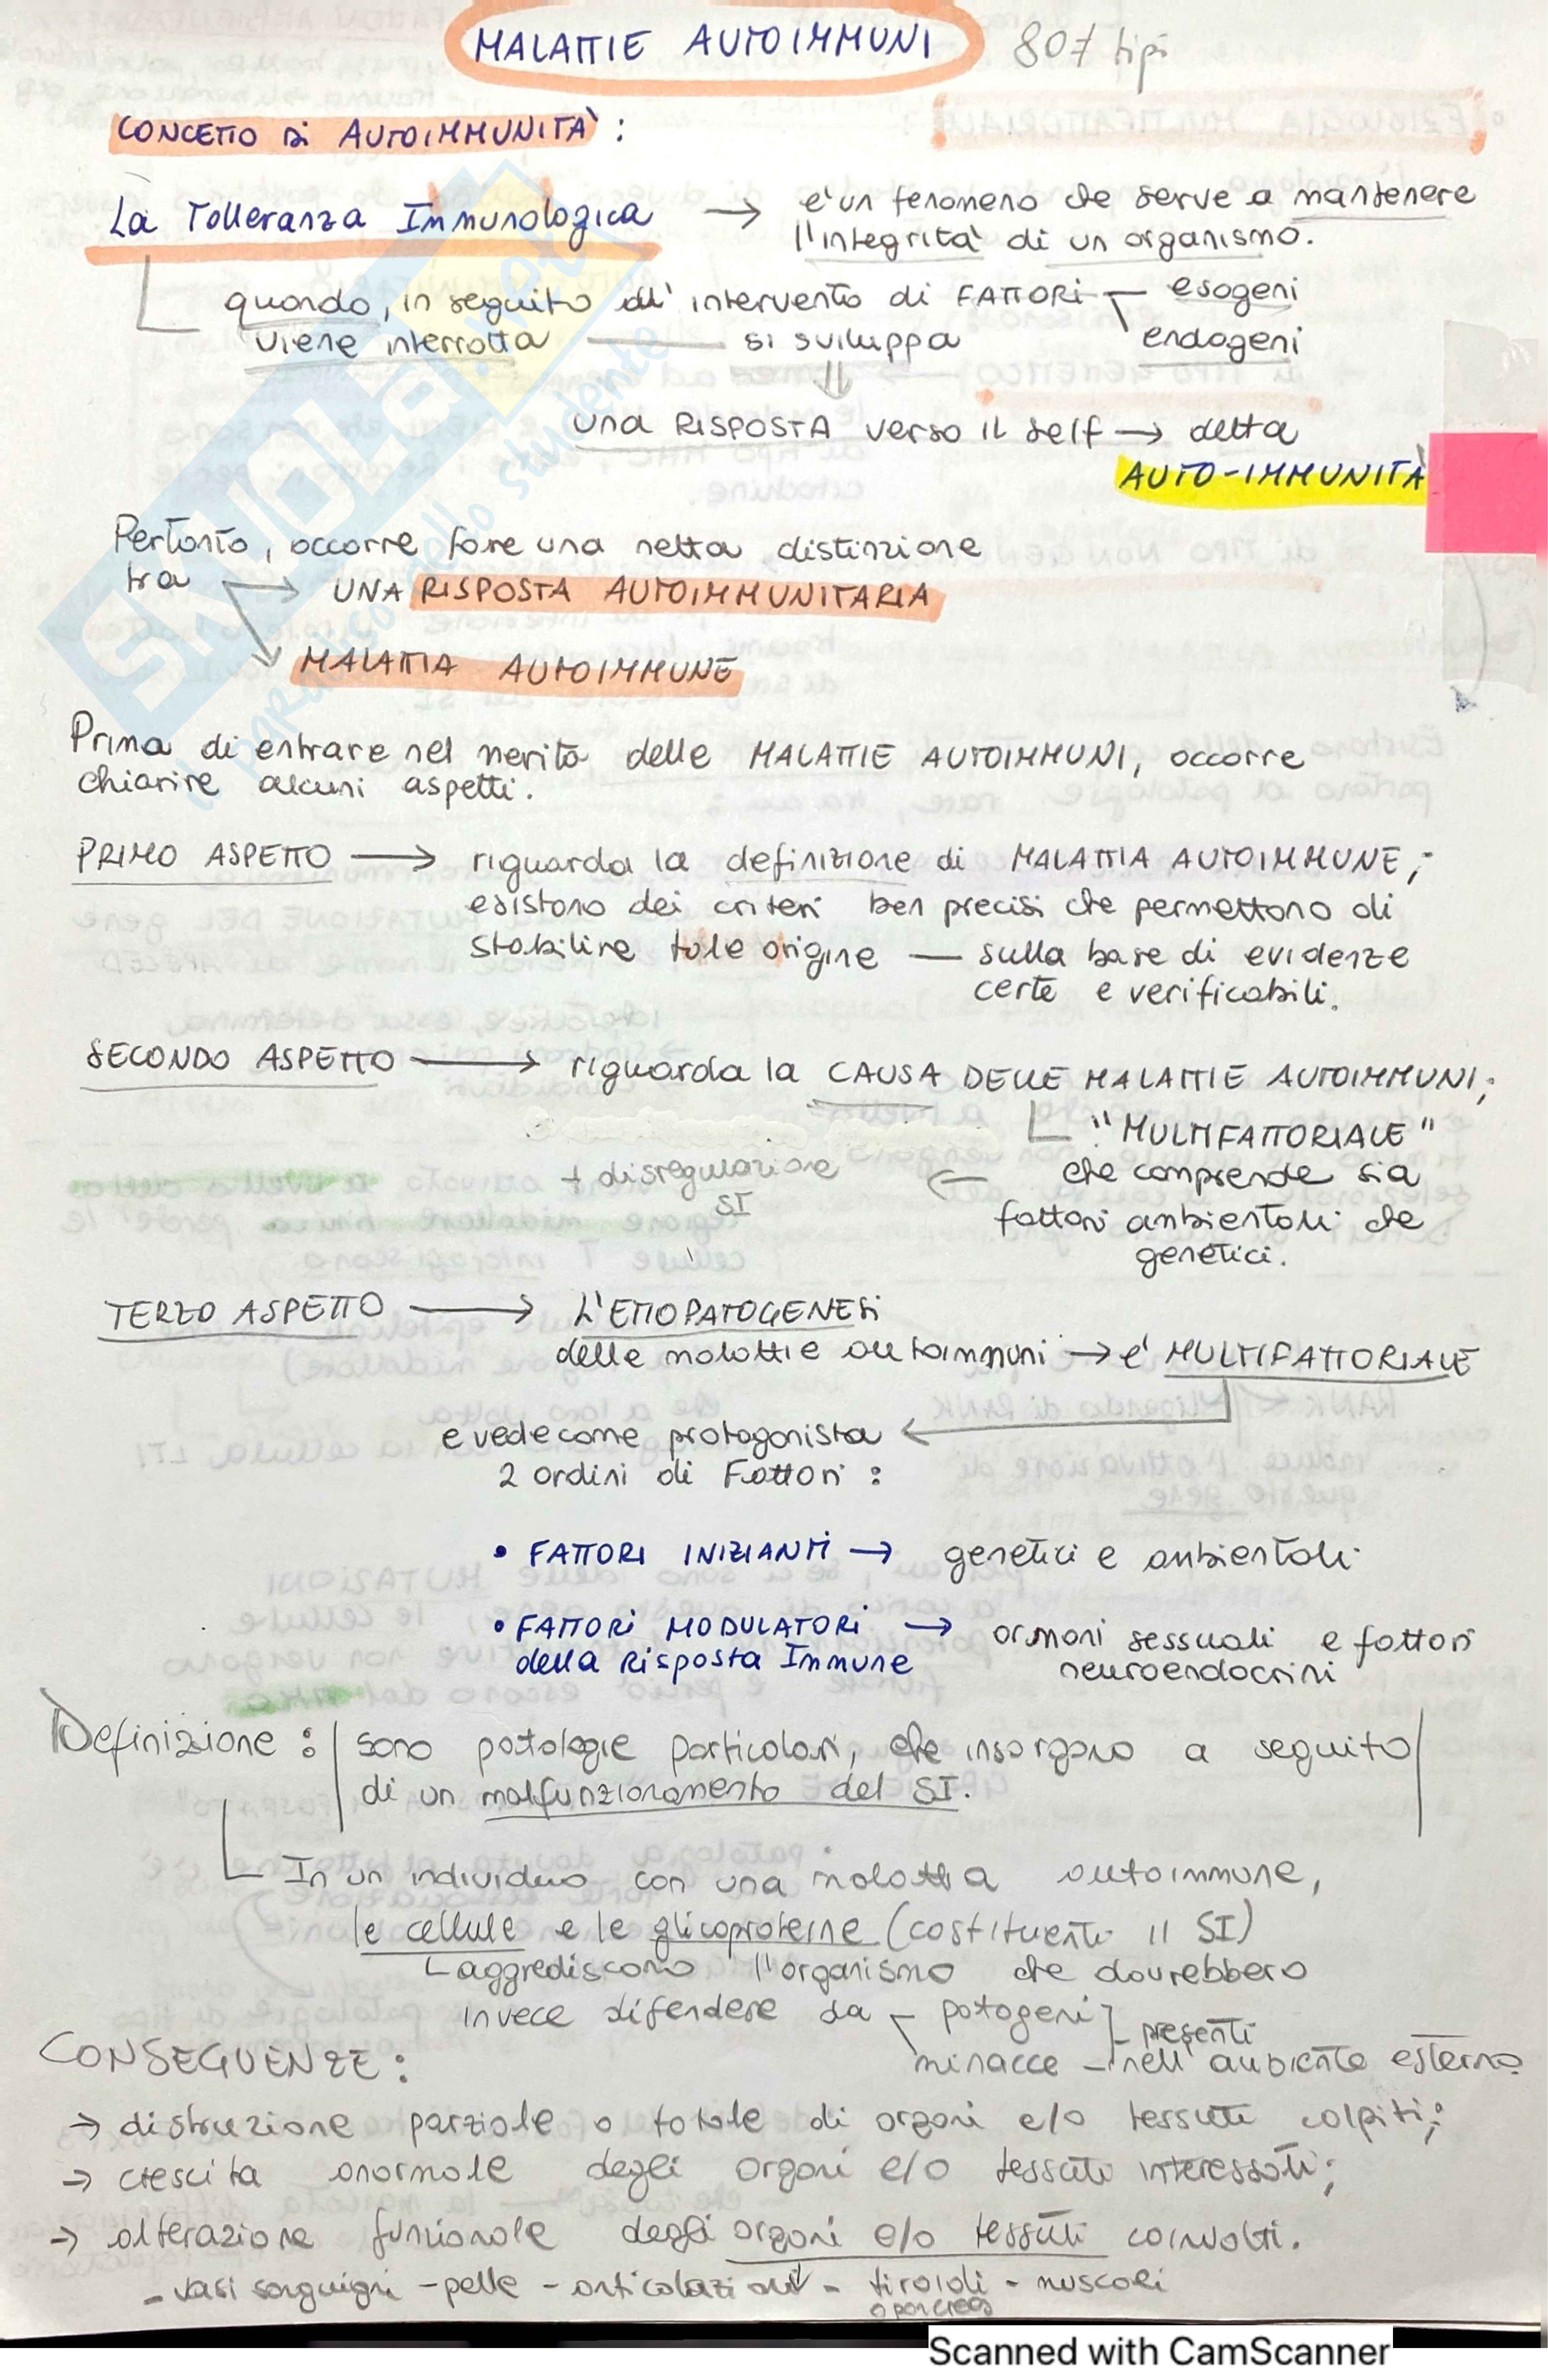 MALATTIE AUTOIMMUNI 807 tipi
CONCETTO di AUTOIMMUNITÀ :
La Tolleranza Immunologica → è un fenomeno che serve a mantenere
l'integrità di un organismo.
quando, in seguito all' intervento di FATTORI esogeni
viene interrotta si sviluppa endogeni
una RISPOSTA verso il self → detta
AUTO-IMMUNITÀ
Pertanto, occorre fare una netta distinzione
tra → UNA RISPOSTA AUTOIMMUNITARIA
MALATTIA AUTOIMMUNE
Prima di entrare nel merito delle MALATTIE AUTOIMMUNI, occorre
chiarire alcuni aspetti.
PRIMO ASPETTO → riguarda la definizione di MALATTIA AUTOIMMUNE;
esistono dei criteri ben precisi che permettono di
stabilire tale origine — sulla base di evidenze
certe e verificabili.
SECONDO ASPETTO → riguarda la CAUSA DELLE MALATTIE AUTOIMMUNI;
"MULTIFATTORIALE"
+ disregulazione ← che comprende sia
SI fattori ambientali che
genetici.
TERZO ASPETTO → L'ETIOPATOGENESI
delle malattie autoimmuni → e' MULTIFATTORIALE
e vede come protagonista ←
2 ordini di Fattori :
• FATTORI INIZIANTI → genetici e ambientali
• FATTORI MODULATORI → ormoni sessuali e fattori
della Risposta Immune neuroendocrini
Definizione : sono patologie particolari, che insorgono a seguito
di un malfunzionamento del SI.
In un individuo con una malattia autoimmune,
le cellule e le glicoproteine (costituenti il SI)
aggrediscono l'organismo che dovrebbero
invece difendere da - patogeni presenti
minacce - nell'ambiente esterno
CONSEGUENZE :
→ distruzione parziale o totale di organi e/o tessuti colpiti;
→ crescita anormale degli organi e/o tessuti interessati;
→ alterazione funzionale degli organi e/o tessuti coinvolti.
- vasi sanguigni - pelle - articolazioni - tiroidi - muscoli
o pancreas
SKUOLA.net
il paradiso dello studente
Scanned with CamScanner